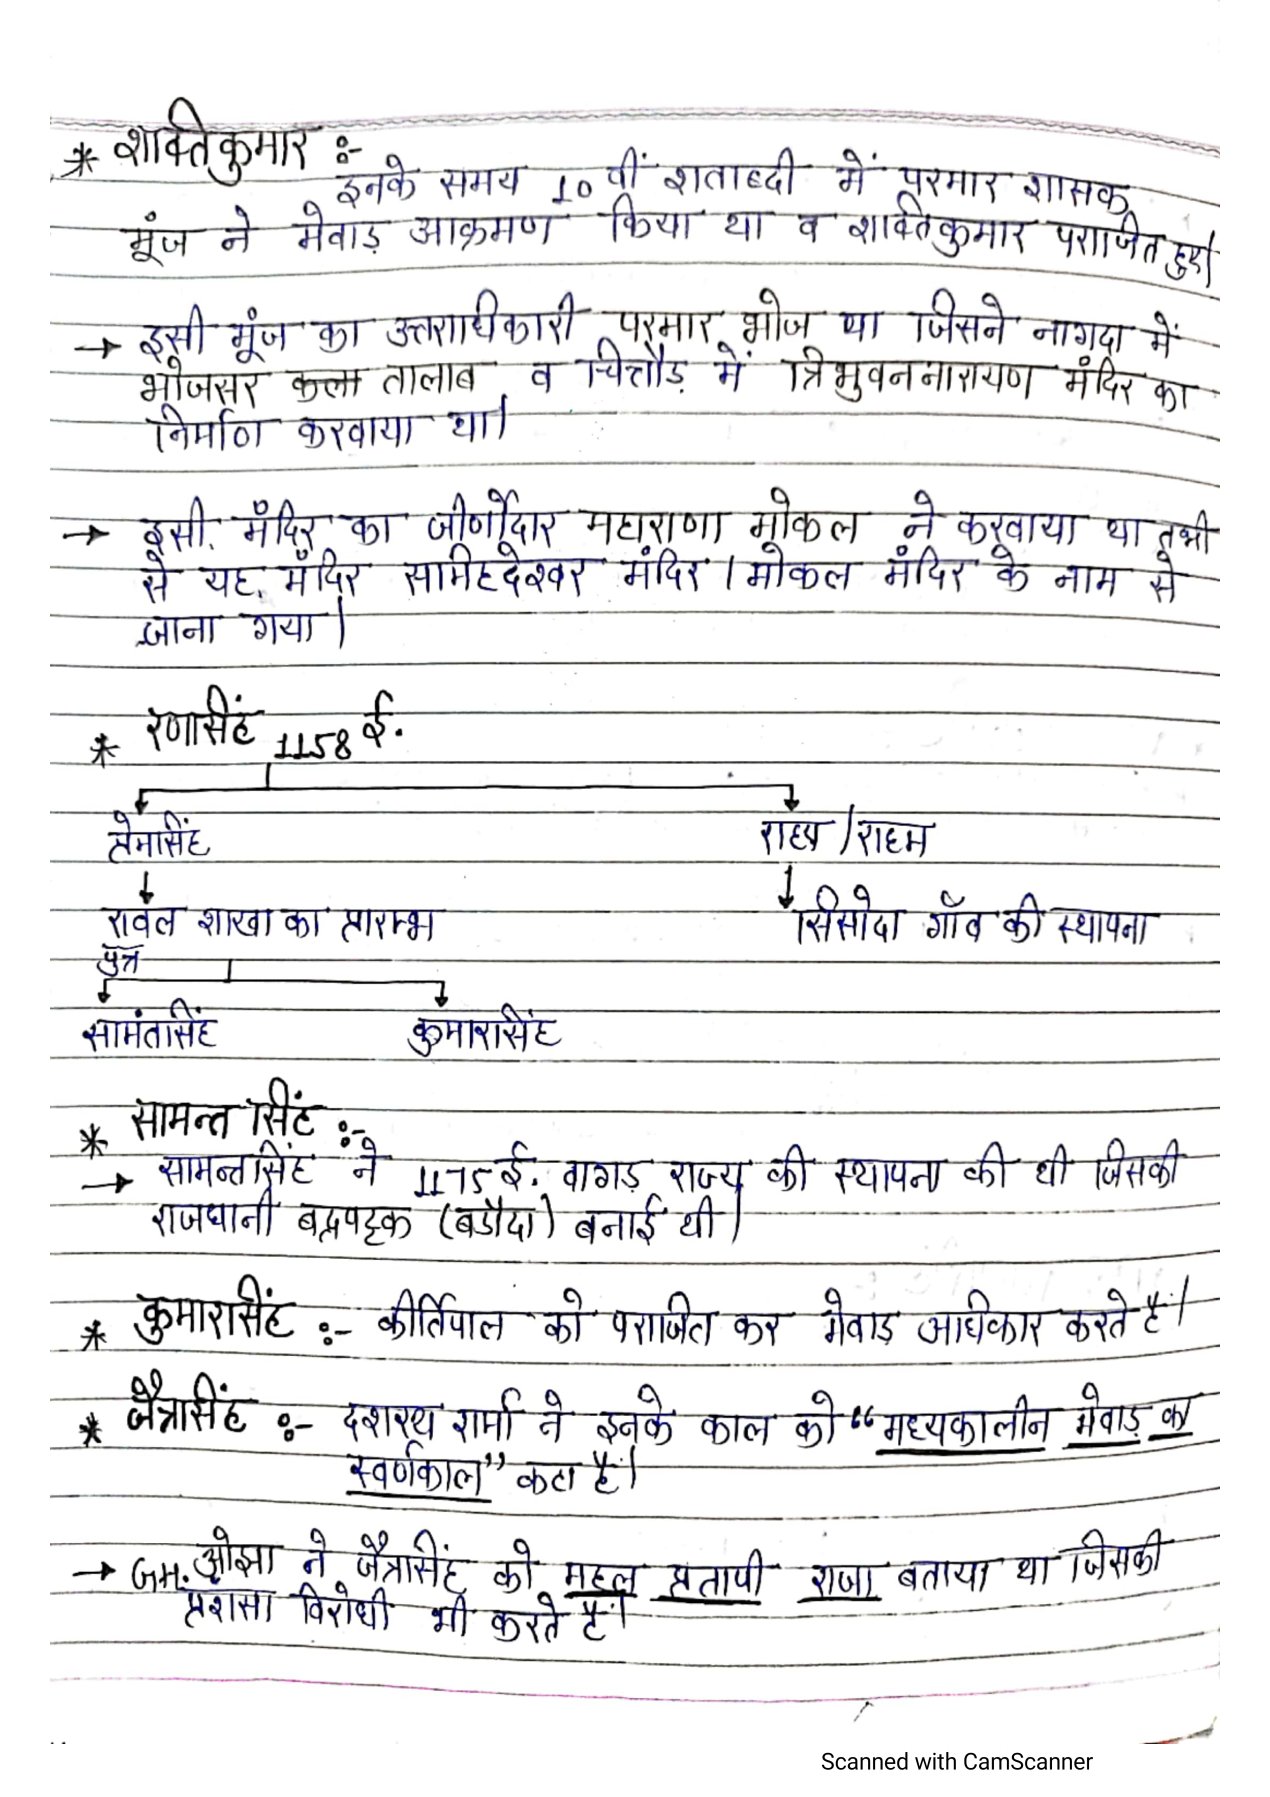 * शक्तिकुमार :-
इनके समय 10 वीं शताब्दी में परमार शासक
मूंज ने मेवाड़ आक्रमण किया था व शक्तिकुमार पराजित हुए।
→ इसी मूंज का उत्तराधिकारी परमार भोज था जिसने नागदा में
भोजसर कला तालाब व चित्तौड़ में त्रिभुवननारायण मंदिर का
निर्माण करवाया था।
→ इसी मंदिर का जीर्णोदार महाराणा मोकल ने करवाया था तभी
से यह मंदिर समिहदेश्वर मंदिर / मोकल मंदिर के नाम से
जाना गया।
* रणसिंह 1158 ई.
क्षेमसिंह राहप / राहम
रावल शाखा का प्रारम्भ सिसोदा गाँव की स्थापना
पुत्र
सामंतसिंह कुमारसिंह
* सामन्त सिंह :-
→ सामन्तसिंह ने 1175 ई. वागड़ राज्य की स्थापना की थी जिसकी
राजधानी वट्रपट्टक (बडौदा) बनाई थी।
* कुमारसिंह :- कीर्तिपाल को पराजित कर मेवाड़ अधिकार करते हैं।
* जैत्रसिंह :- दशरथ शर्मा ने इनके काल को “मध्यकालीन मेवाड़ का
स्वर्णकाल” कहा है।
→ GH. ओझा ने जैत्रसिंह को प्रतापी राजा बताया था जिसकी
प्रशसा विरोधी भी करते हैं।
Scanned with CamScanner